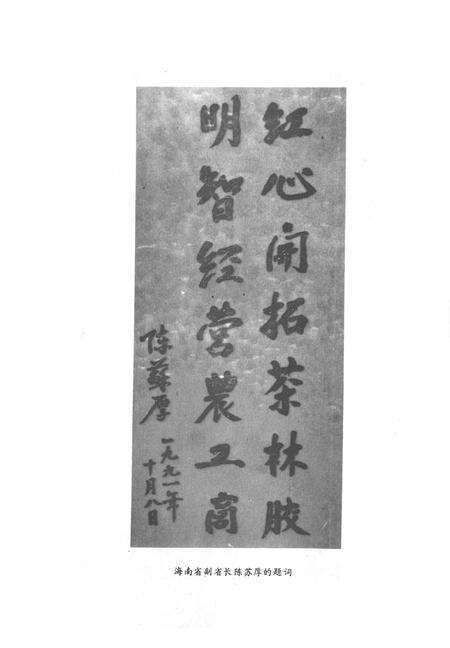 红心开拓茶林胶
明智经营農工商
陈蘇厚
一九九一年
十月八日
海南省副省长陈苏厚的题词